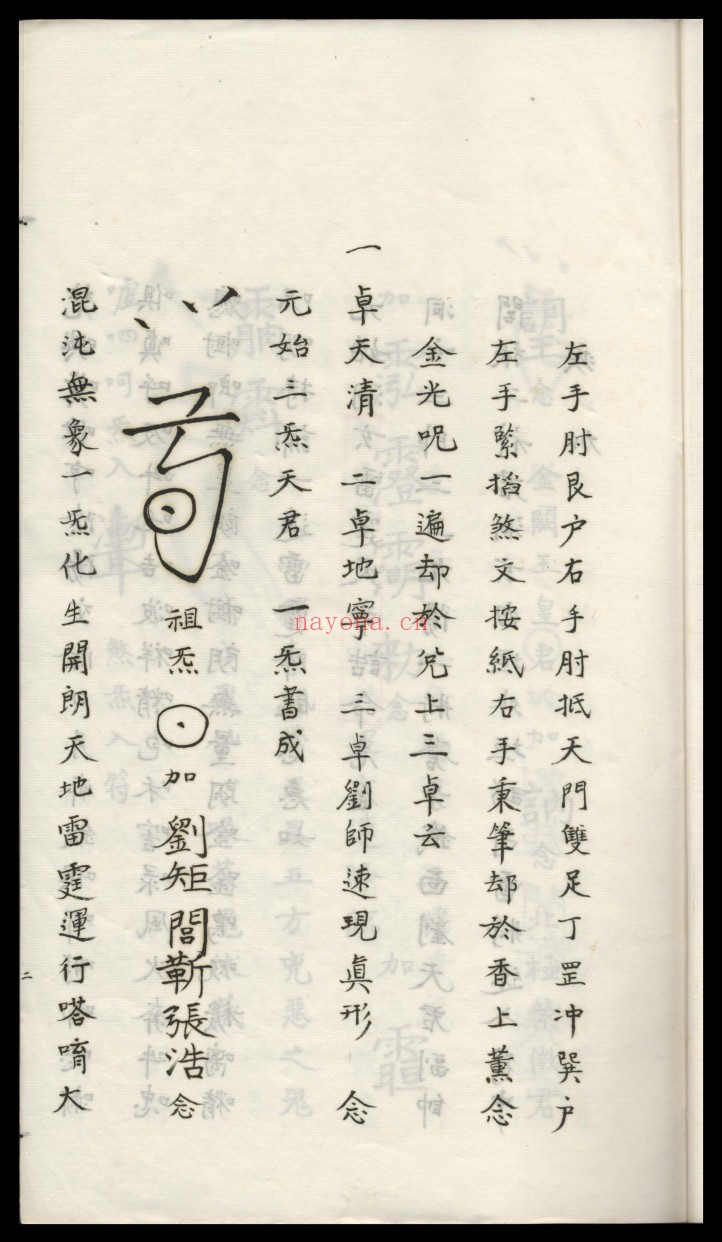 左手肘艮户右手肘抵天門雙足丁罡冲巽户
左手緊掐煞文按紙右手秉筆却於香上薰念
金光呪一遍却於兌上三卓云
一卓天清 二卓地寧 三卓劉師速現眞形 念
元始三炁天君 一炁書成
祖炁 加 劉矩閻蘄張浩念
混沌無象一炁化生開朗天地雷霆運行嗒唷大
二
nayona.cn